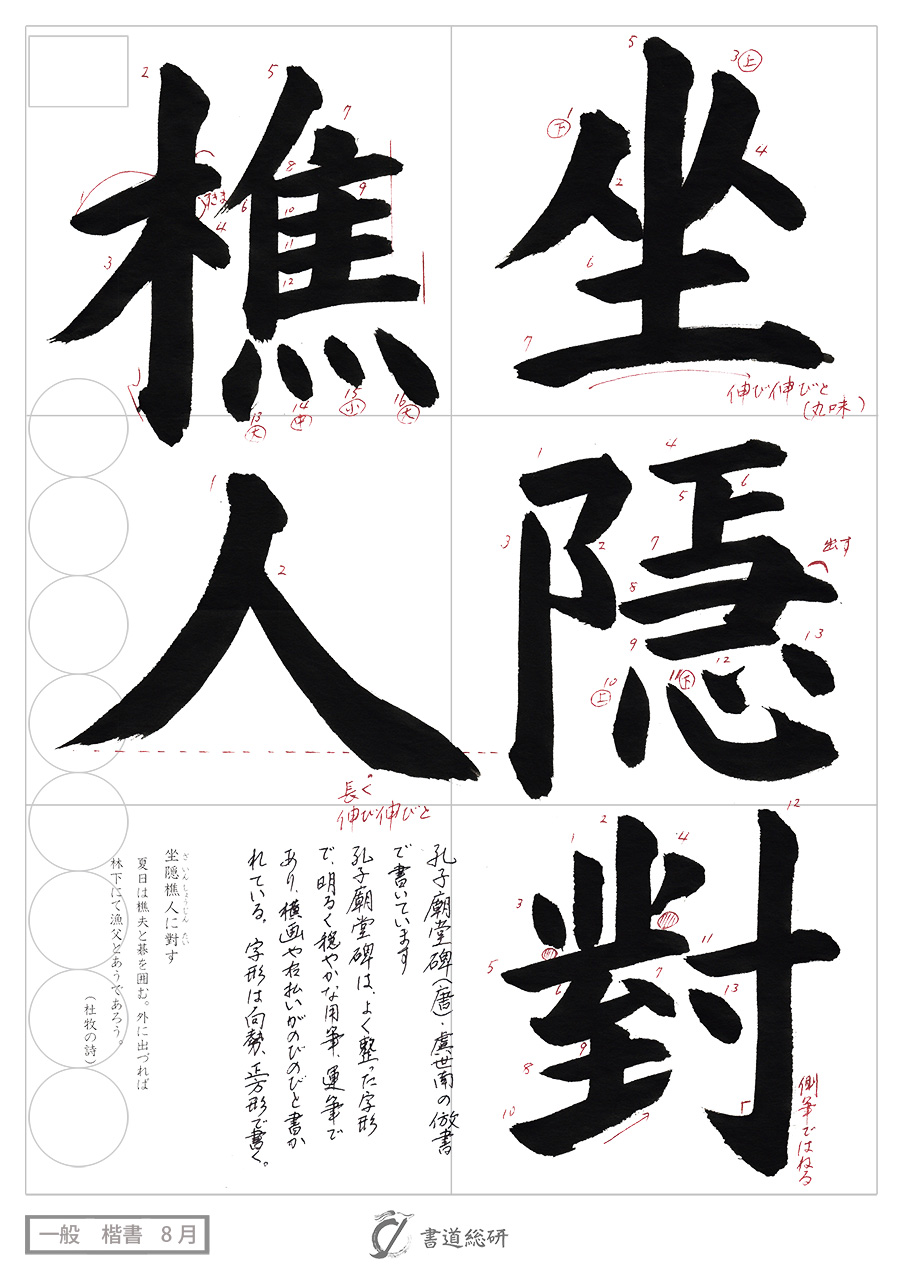 坐隠對
樵人
1
下
2
3
上
4
5
6
7
伸び伸びと
(丸味)
1
2
3
4
5
6
7
出す
8
9
10
上
11
下
12
13
1
2
3
4
5
6
7
8
9
10
11
12
13
側筆ではねる
1
2
3
すきま
4
5
6
7
8
9
10
11
12
13
大
14
中
15
小
16
大
1
2
長く
伸び伸びと
孔子廟堂碑(唐)・虞世南の倣書
で書いています
孔子廟堂碑は、よく整った字形
で、明るく穏やかな用筆、運筆で
あり、横画や右払いがのびのびと書か
れている。字形は向勢、正方形で書く。
ざいんしょうじん たい
坐隠樵人に對す
夏日は樵夫と碁を囲む。外に出づれば
林下にて漁父とあうであろう。
(杜牧の詩)
一般 楷書 8月
書道総研